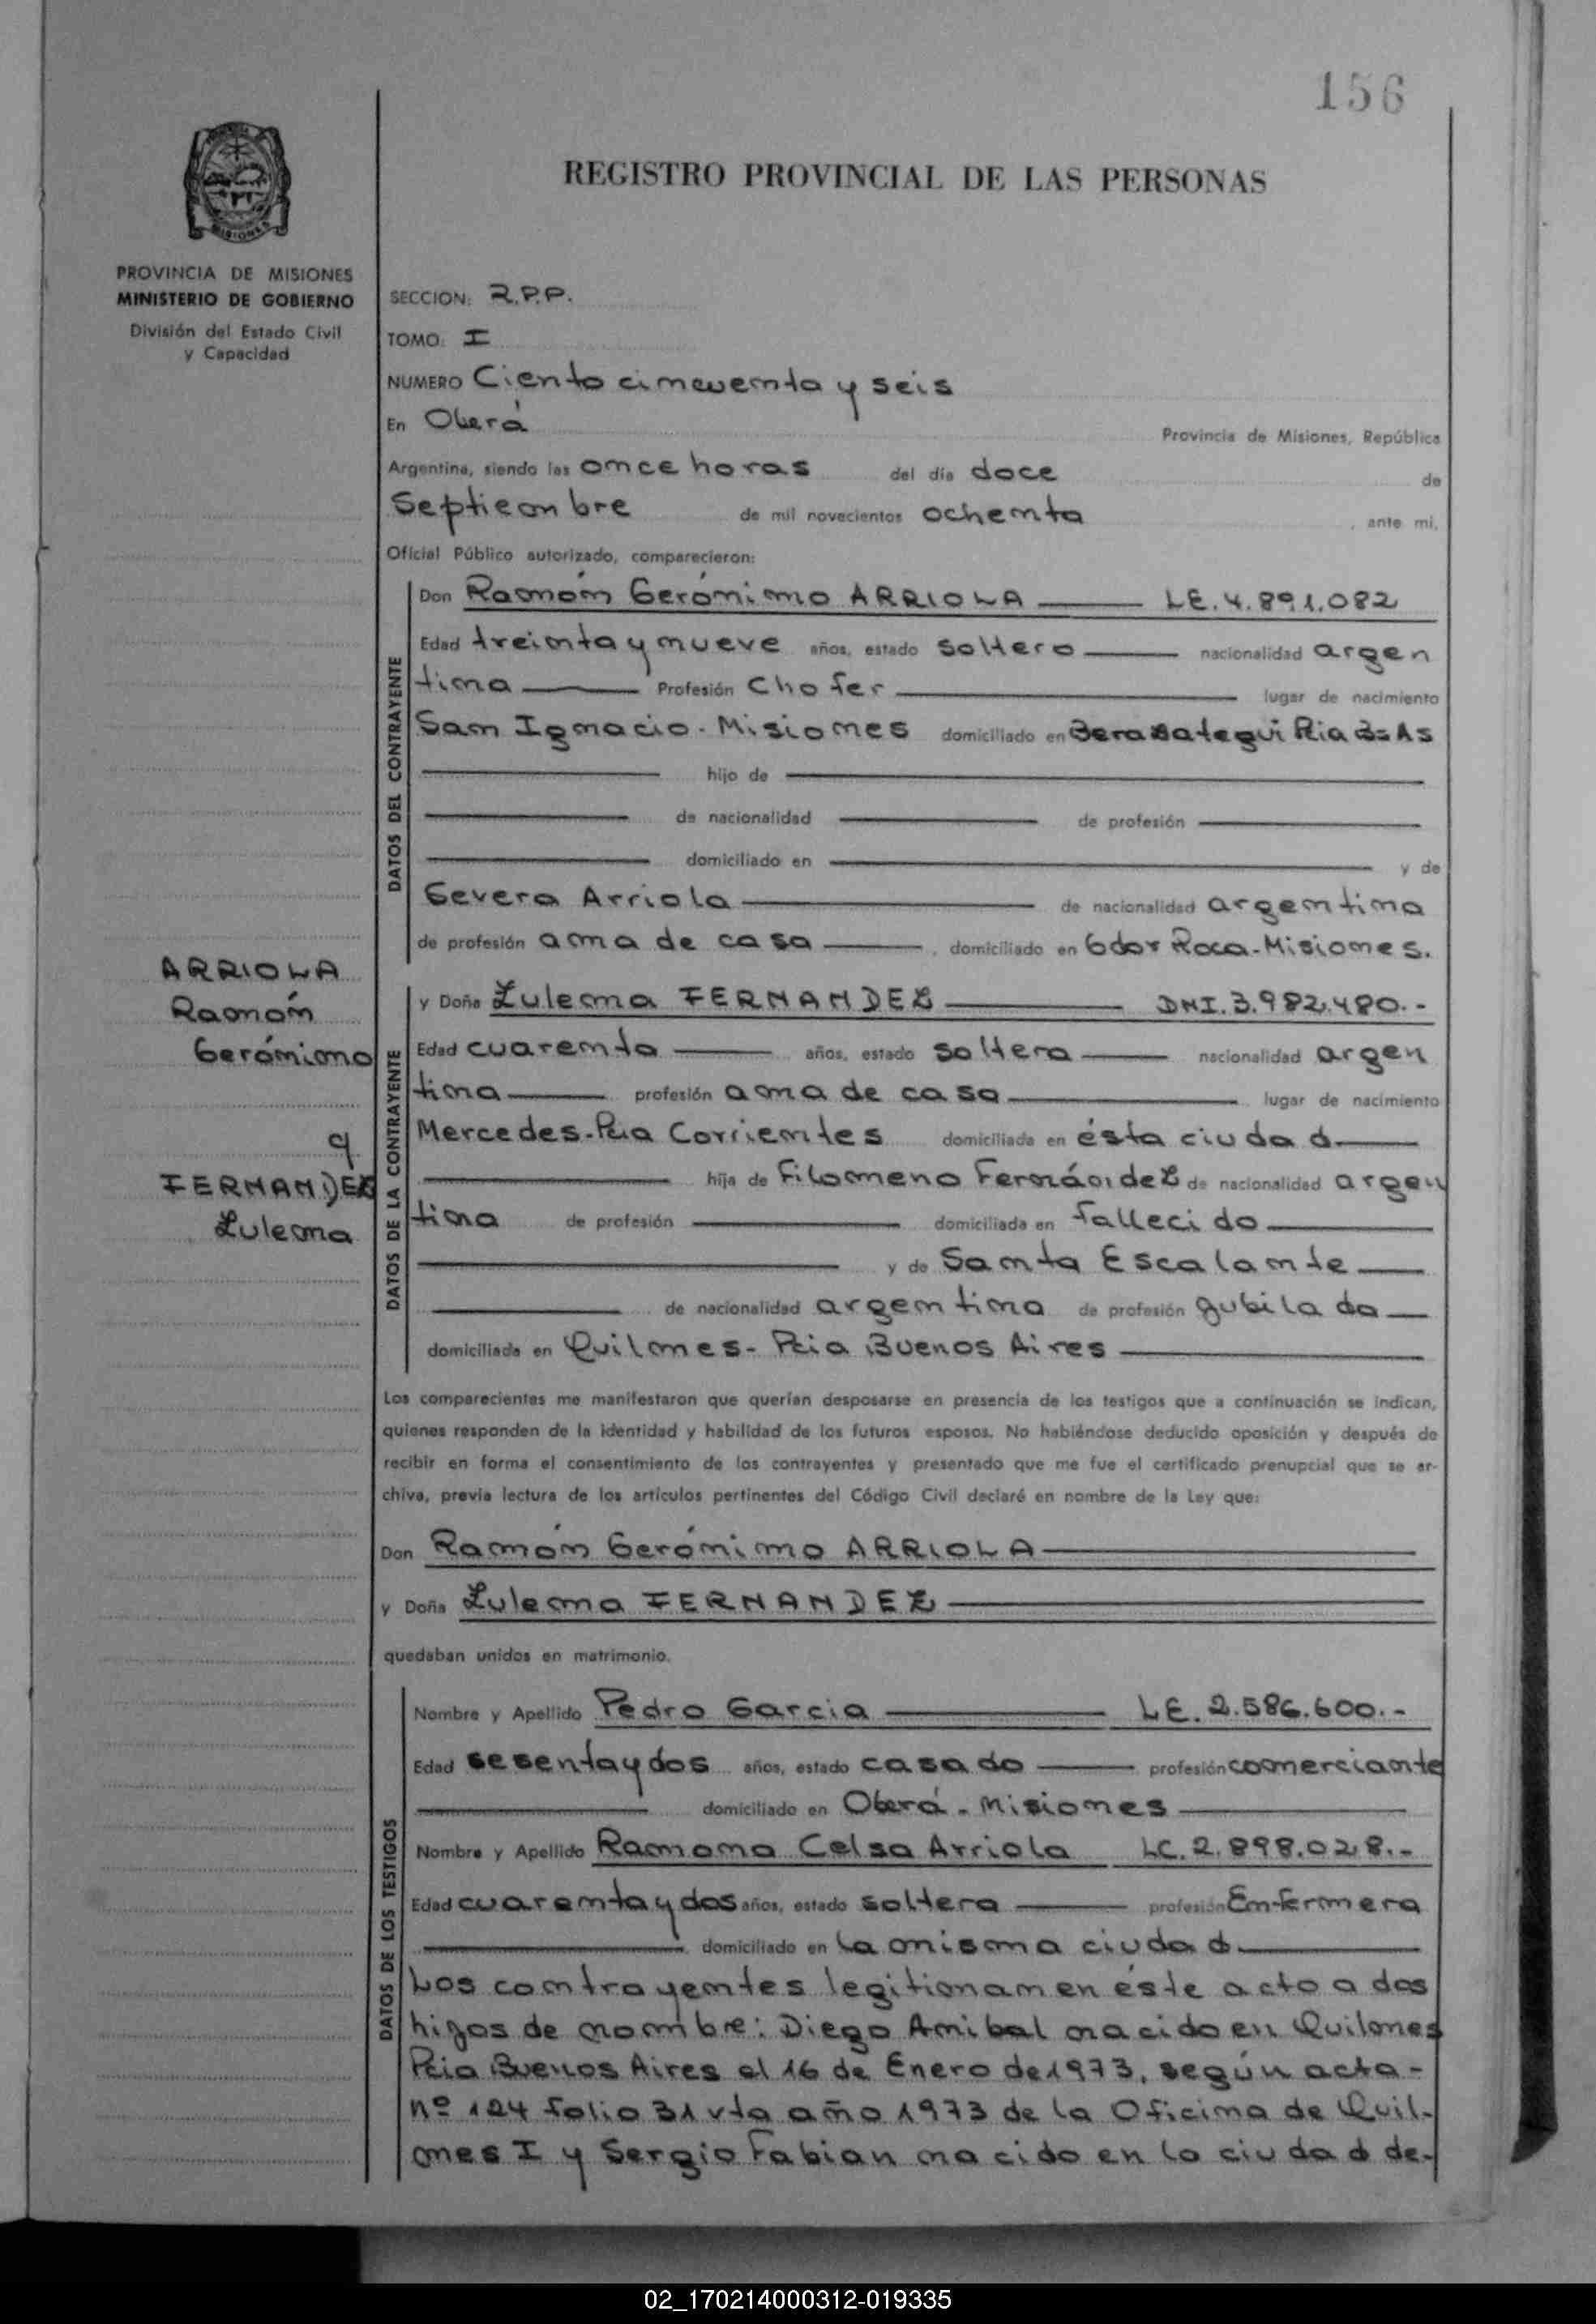 156
REGISTRO PROVINCIAL DE LAS PERSONAS
MISIONES
PROVINCIA DE MISIONES
MINISTERIO DE GOBIERNO
División del Estado Civil
y Capacidad
SECCION: R.P.P.
TOMO: I
NUMERO Ciento cincuenta y seis
En Oberá
Provincia de Misiones, República
Argentina, siendo las once horas del día doce de
Septiembre de mil novecientos ochenta, ante mi,
Oficial Público autorizado, comparecieron:
DATOS DEL CONTRAYENTE
Don Ramón Gerónimo ARRIOLA L.E. 4.891.082
Edad treinta y nueve años, estado soltero nacionalidad argen
tina Profesión Chofer lugar de nacimiento
San Ignacio - Misiones domiciliado en Berazategui Pcia Bs As
hijo de
de nacionalidad de profesión
domiciliado en y de
Severa Arriola de nacionalidad argentina
de profesión ama de casa, domiciliado en Gdor Roca - Misiones.
ARRIOLA
Ramón
Gerónimo
y
FERNANDEZ
Zulema
DATOS DE LA CONTRAYENTE
y Doña Zulema FERNANDEZ DNI. 3.982.480.-
Edad cuarenta años, estado soltera nacionalidad argen
tina profesión ama de casa lugar de nacimiento
Mercedes - Pcia Corrientes domiciliada en ésta ciudad
hija de Filomeno Fernández de nacionalidad argen
tina de profesión domiciliada en fallecido
y de Santa Escalante
de nacionalidad argentina de profesión jubilada
domiciliada en Quilmes - Pcia Buenos Aires
Los comparecientes me manifestaron que querían desposarse en presencia de los testigos que a continuación se indican,
quienes responden de la identidad y habilidad de los futuros esposos. No habiéndose deducido oposición y después de
recibir en forma el consentimiento de los contrayentes y presentado que me fue el certificado prenupcial que se ar-
chiva, previa lectura de los artículos pertinentes del Código Civil declaré en nombre de la Ley que:
Don Ramón Gerónimo ARRIOLA
y Doña Zulema FERNANDEZ
quedaban unidos en matrimonio.
DATOS DE LOS TESTIGOS
Nombre y Apellido Pedro Garcia L.E. 2.586.600.-
Edad sesenta y dos años, estado casado profesión comerciante
domiciliado en Oberá - Misiones
Nombre y Apellido Ramona Celsa Arriola LC. 2.898.028.-
Edad cuarenta y dos años, estado soltera profesión Enfermera
domiciliado en la misma ciudad
Los contrayentes legitiman en éste acto a dos
hijos de nombre: Diego Anibal nacido en Quilmes
Pcia Buenos Aires el 16 de Enero de 1973, según acta-
nº 124 folio 31 vta año 1973 de la Oficina de Quil-
mes I y Sergio Fabian nacido en la ciudad de-
02_170214000312-019335